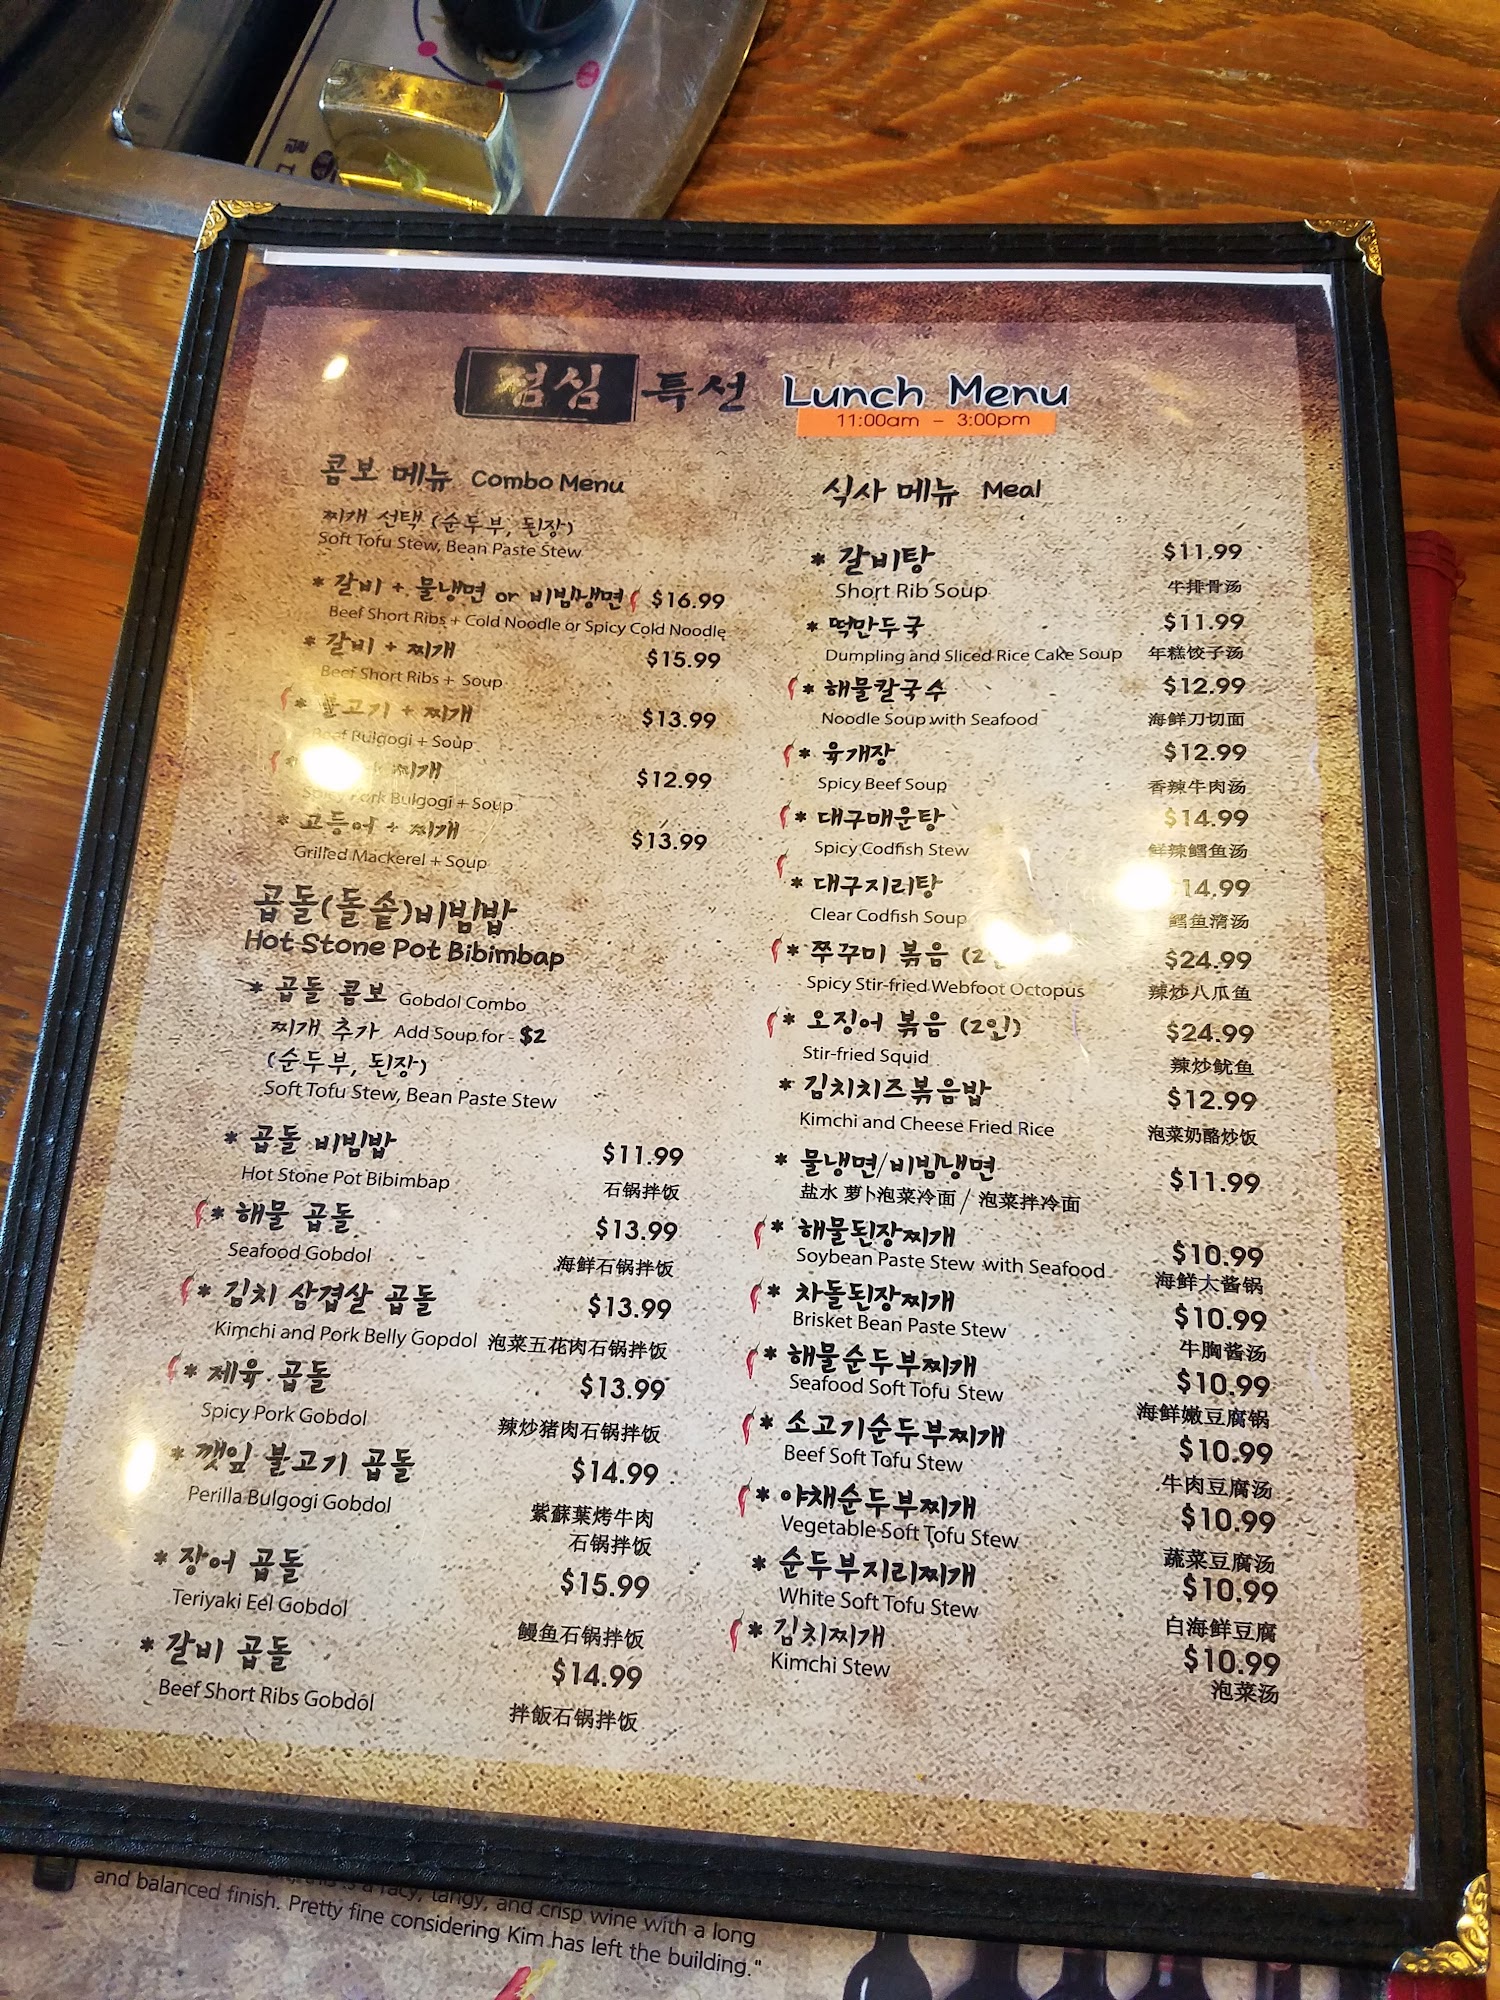 점심 특선 Lunch Menu
11:00am - 3:00pm
콤보 메뉴 Combo Menu
찌개 선택 (순두부, 된장)
Soft Tofu Stew, Bean Paste Stew
* 갈비 + 물냉면 or 비빔냉면 $16.99
Beef Short Ribs + Cold Noodle or Spicy Cold Noodle
* 갈비 + 찌개 $15.99
Beef Short Ribs + Soup
* 불고기 + 찌개 $13.99
Beef Bulgogi + Soup
* 찌개 $12.99
Spicy Pork Bulgogi + Soup
* 고등어 + 찌개 $13.99
Grilled Mackerel + Soup
곱돌(돌솥)비빔밥
Hot Stone Pot Bibimbap
* 곱돌 콤보 Gobdol Combo
찌개 추가 Add Soup for - $2
(순두부, 된장)
Soft Tofu Stew, Bean Paste Stew
* 곱돌 비빔밥 $11.99
Hot Stone Pot Bibimbap 石锅拌饭
* 해물 곱돌 $13.99
Seafood Gobdol 海鲜石锅拌饭
* 김치 삼겹살 곱돌 $13.99
Kimchi and Pork Belly Gopdol 泡菜五花肉石锅拌饭
* 제육 곱돌 $13.99
Spicy Pork Gobdol 辣炒猪肉石锅拌饭
* 깻잎 불고기 곱돌 $14.99
Perilla Bulgogi Gobdol 紫蘇葉烤牛肉
石锅拌饭
* 장어 곱돌 $15.99
Teriyaki Eel Gobdol 鳗鱼石锅拌饭
* 갈비 곱돌 $14.99
Beef Short Ribs Gobdol 拌飯石锅拌饭
식사 메뉴 Meal
* 갈비탕 $11.99
Short Rib Soup 牛排骨汤
* 떡만두국 $11.99
Dumpling and Sliced Rice Cake Soup 年糕饺子汤
* 해물칼국수 $12.99
Noodle Soup with Seafood 海鲜刀切面
* 육개장 $12.99
Spicy Beef Soup 香辣牛肉汤
* 대구매운탕 $14.99
Spicy Codfish Stew 鲜辣鳕鱼汤
* 대구지리탕 14.99
Clear Codfish Soup 鳕鱼清汤
* 쭈꾸미 볶음 (2인 $24.99
Spicy Stir-fried Webfoot Octopus 辣炒八爪鱼
* 오징어 볶음 (2인) $24.99
Stir-fried Squid 辣炒鱿鱼
* 김치치즈볶음밥 $12.99
Kimchi and Cheese Fried Rice 泡菜奶酪炒饭
* 물냉면/비빔냉면 $11.99
盐水 萝卜泡菜冷面 / 泡菜拌冷面
* 해물된장찌개 $10.99
Soybean Paste Stew with Seafood 海鲜太酱锅
* 차돌된장찌개 $10.99
Brisket Bean Paste Stew 牛胸酱汤
* 해물순두부찌개 $10.99
Seafood Soft Tofu Stew 海鲜嫩豆腐锅
* 소고기순두부찌개 $10.99
Beef Soft Tofu Stew 牛肉豆腐汤
* 야채순두부찌개 $10.99
Vegetable Soft Tofu Stew 蔬菜豆腐汤
* 순두부지리찌개 $10.99
White Soft Tofu Stew 白海鲜豆腐
* 김치찌개 $10.99
Kimchi Stew 泡菜汤
is a racy, tangy, and crisp wine with a long
and balanced finish. Pretty fine considering Kim has left the building."